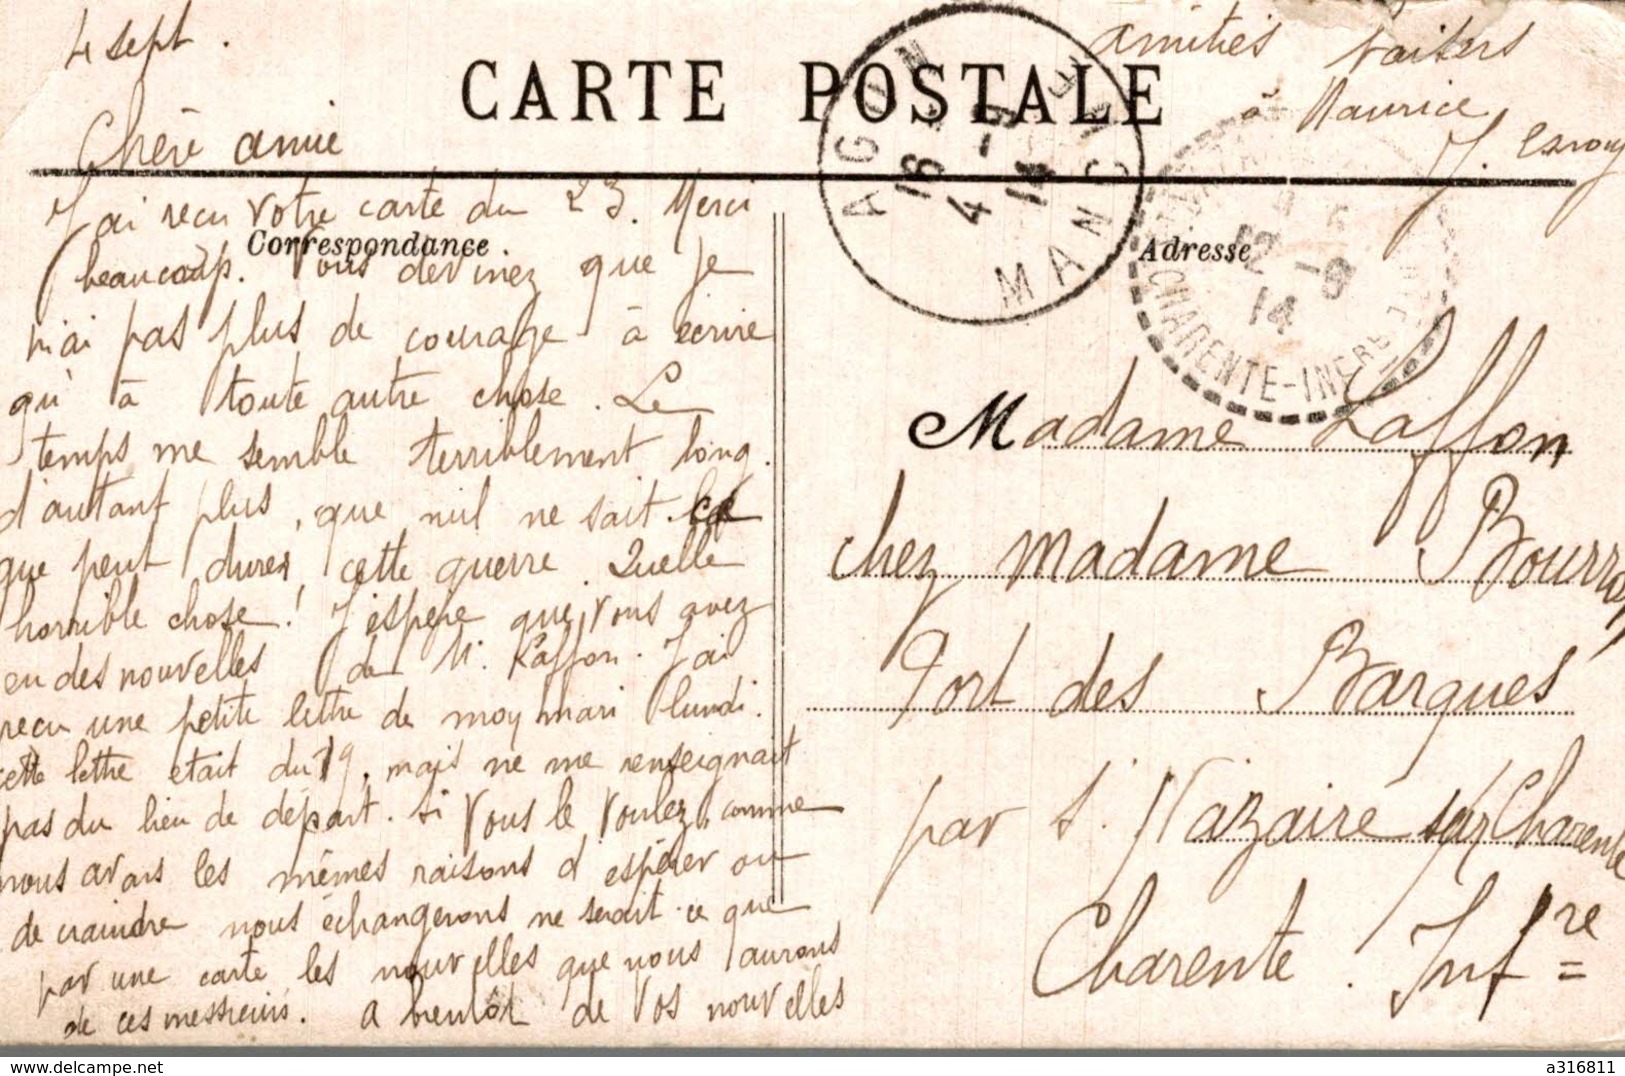 4 sept.
CARTE POSTALE
Chère amie
J'ai reçu votre carte du 23. Merci
Correspondance
beaucoup. Vous devinez que je
n'ai pas plus de courage à écrire
qu'à toute autre chose. Le
temps me semble terriblement long
d'autant plus, que nul ne sait ce
que peut durer cette guerre. Quelle
horrible chose! J'espère que vous avez
eu des nouvelles de M. Laffon. J'ai
reçu une petite lettre de mon mari lundi.
cette lettre était du 19, mais ne me renseignait
pas du lieu de départ. Si vous le voulez, comme
nous avons les mêmes raisons d'espérer ou
de craindre nous échangerons ne serait-ce que
par une carte les nouvelles que nous aurons
de ces messieurs. A bientôt de vos nouvelles
amitiés baisers
à Maurice
AGON
16
4 -9
14
MANCHE
12 -9
14
CHARENTE-INFRE
Adresse
Madame Laffon
chez madame
Port des Barques
par St Nazaire sur Charente
Charente. Infre
delcampe.net
a316811